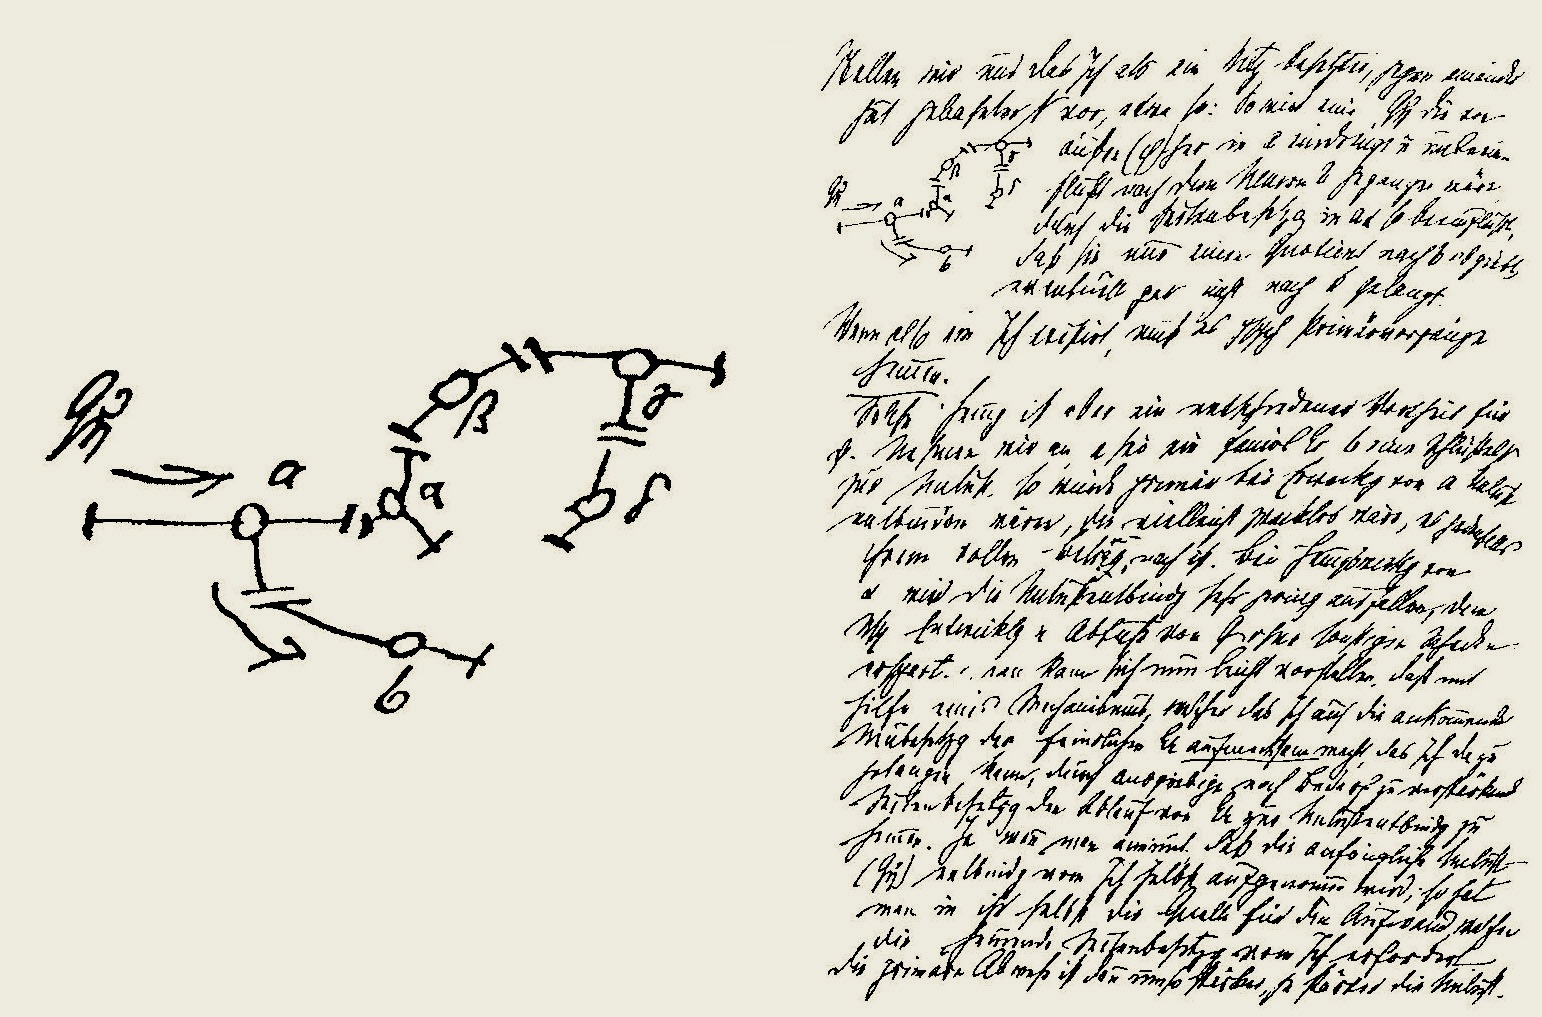 Qη̇
a
α
β
γ
δ
b
Stellen wir uns das Ich als ein Netz besetzter, gegen einander
gut gebahnter N vor, etwa so: So wird eine Qη̇ die von
außen (φ) her in a eindringt u unbeein-
flußt nach dem Neuron b gegangen wäre
durch die Seitenbesetzg in aα so beeinflußt,
daß sie nur einen Quotient nach b abgiebt,
eventuell gar nicht nach b gelangt.
Qη̇
a
α
β
γ
δ
b
Wenn also ein Ich existirt, muß es psych Primärvorgänge
hemen.
Solche Hemg ist aber ein entschiedener Vortheil für
ψ. Nehmen wir an a sei ein feindl Er b eine Schlüssel
zur Unlust, so würde primär bei Erweckg von a Unlust
entbunden werden, die vielleicht zwecklos wäre, es jedenfalls
ihrem vollen Betrag nach ist. Bei Hemgswirkg von
α wird die Unlustentbindg sehr gering ausfallen, dem
Nsy Entwicklg u Abfuhr von Q ohne sonstigen Schaden
erspart. Man kann sich nun leicht vorstellen, daß mit
Hilfe eines Mechanismus, welcher das Ich auf die ankomende
Neubesetzg des feindlichen Er aufmerksam macht, das Ich dazu
gelangen kann, durch ausgiebige nach Bedarf zu verstärkende
Seitenbesetzg den Ablauf vom Er zur Unlustentbindg zu
hemen. Ja wenn man animt, daß die anfängliche Unlust
(Qη̇) entbindg vom Ich selbst aufgenomen wird, so hat
man in ihr selbst die Quelle für den Aufwand, welchen
die hemende Seitenbesetzg vom Ich erfordert
Die primäre Abwehr ist dan umso stärker, je stärker die Unlust.